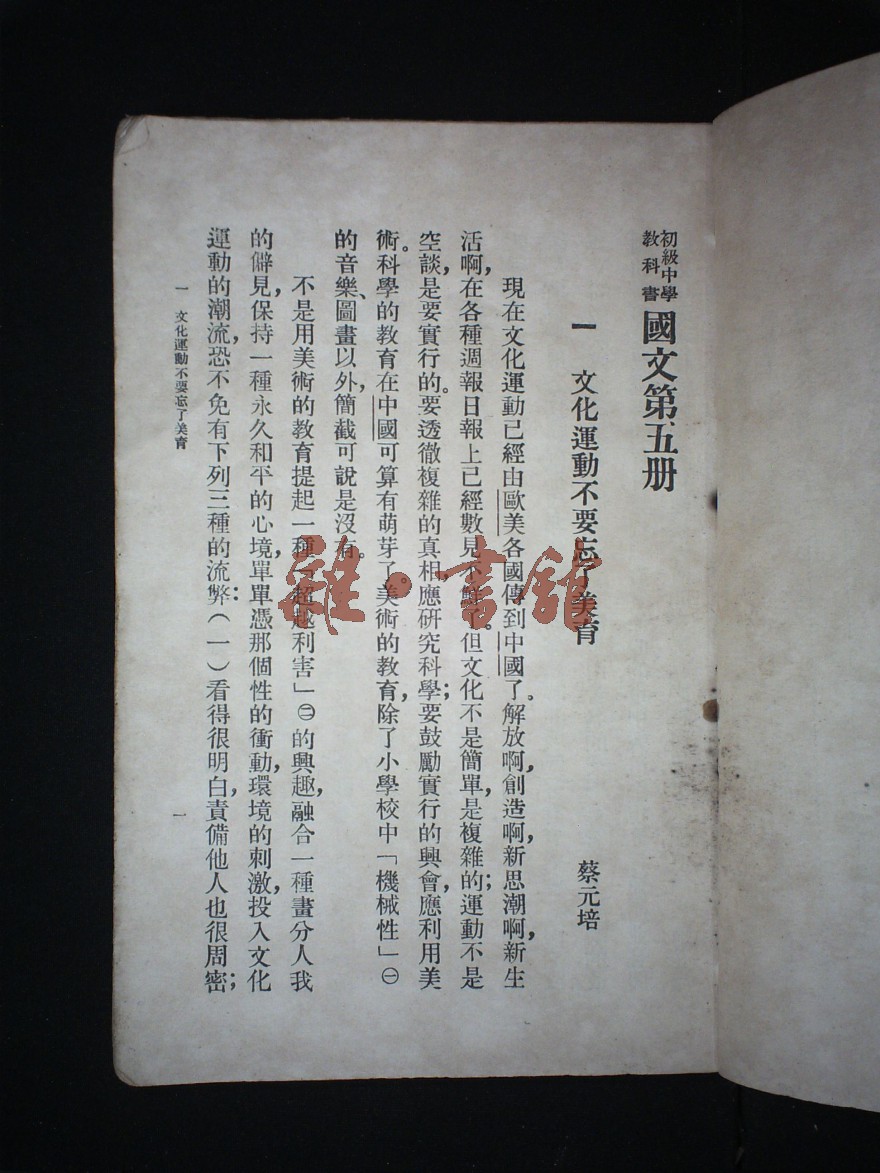 初級中學
教科書
國文第五册
一 文化運動不要忘了美育
蔡元培
現在文化運動已經由歐美各國傳到中國了。解放啊,創造啊,新思潮啊,新生
活啊,在各種週報日報上已經數見不鮮了。但文化不是簡單,是複雜的;運動不是
空談,是要實行的。要透徹複雜的真相,應研究科學;要鼓勵實行的興會,應利用美
術。科學的教育在中國可算有萌芽了,美術的教育,除了小學校中「機械性」㊀
的音樂、圖畫以外,簡截可說是沒有。
不是用美術的教育提起一種「超越利害」㊁的興趣,融合一種畫分人我
的僻見,保持一種永久和平的心境,單單憑那個性的衝動,環境的刺激,投入文化
運動的潮流,恐不免有下列三種的流弊:(一)看得很明白,責備他人也很周密;
一 文化運動不要忘了美育
一
雜·書館